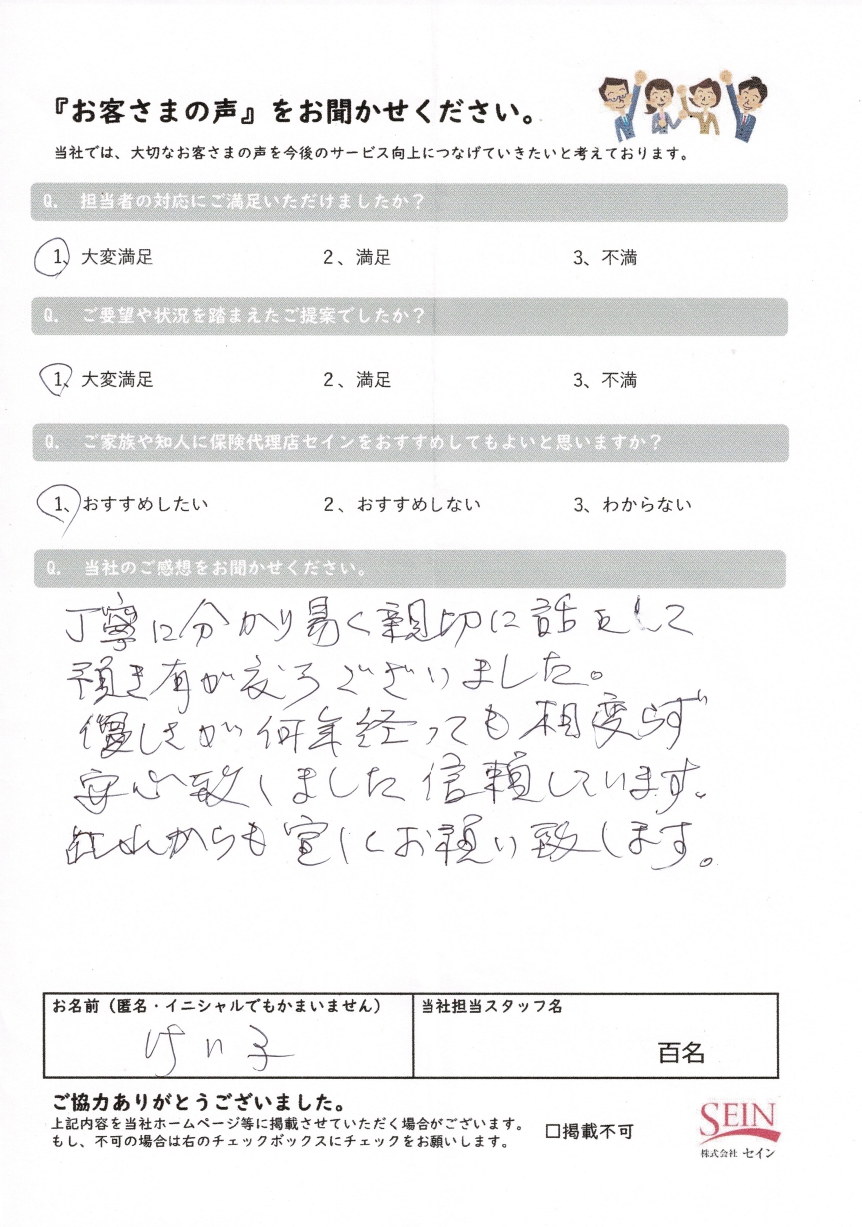 『お客さまの声』をお聞かせください。
当社では、大切なお客さまの声を今後のサービス向上につなげていきたいと考えております。
Q. 担当者の対応にご満足いただけましたか？
1、大変満足 2、満足 3、不満
Q. ご要望や状況を踏まえたご提案でしたか？
1、大変満足 2、満足 3、不満
Q. ご家族や知人に保険代理店セインをおすすめしてもよいと思いますか？
1、おすすめしたい 2、おすすめしない 3、わからない
Q. 当社のご感想をお聞かせください。
丁寧に分かり易く親切に話をして
頂き有が度うございました。
優しさが何年経っても相変らず
安心致しました信頼しています。
これからも宜しくお願い致します。
お名前（匿名・イニシャルでもかまいません） 当社担当スタッフ名
けい子 百名
ご協力ありがとうございました。
上記内容を当社ホームページ等に掲載させていただく場合がございます。
もし、不可の場合は右のチェックボックスにチェックをお願いします。
□掲載不可
SEIN
株式会社 セイン